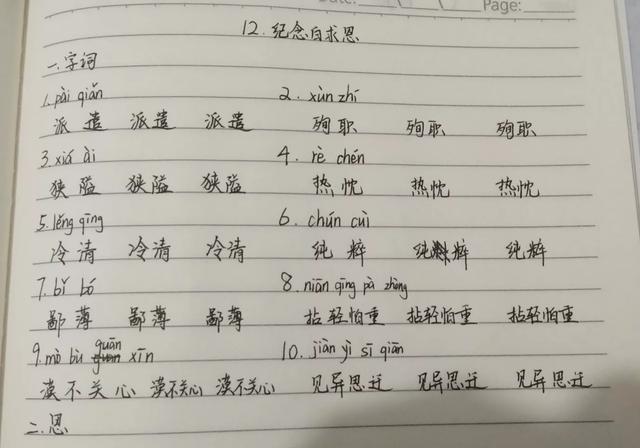 Date: Page:
12.纪念白求恩
一.字词
1.pài qiǎn 2.xùn zhí
派遣 派遣 派遣 殉职 殉职 殉职
3.xiá ài 4.rè chén
狭隘 狭隘 狭隘 热忱 热忱 热忱
5.lěng qīng 6.chún cuì
冷清 冷清 冷清 纯粹 纯粹 纯粹
7.bǐ bó 8.niān qīng pà zhòng
鄙薄 鄙薄 鄙薄 拈轻怕重 拈轻怕重 拈轻怕重
9.mò bù guān xīn 10.jiàn yì sī qiān
漠不关心 漠不关心 漠不关心 见异思迁 见异思迁 见异思迁
二.恩